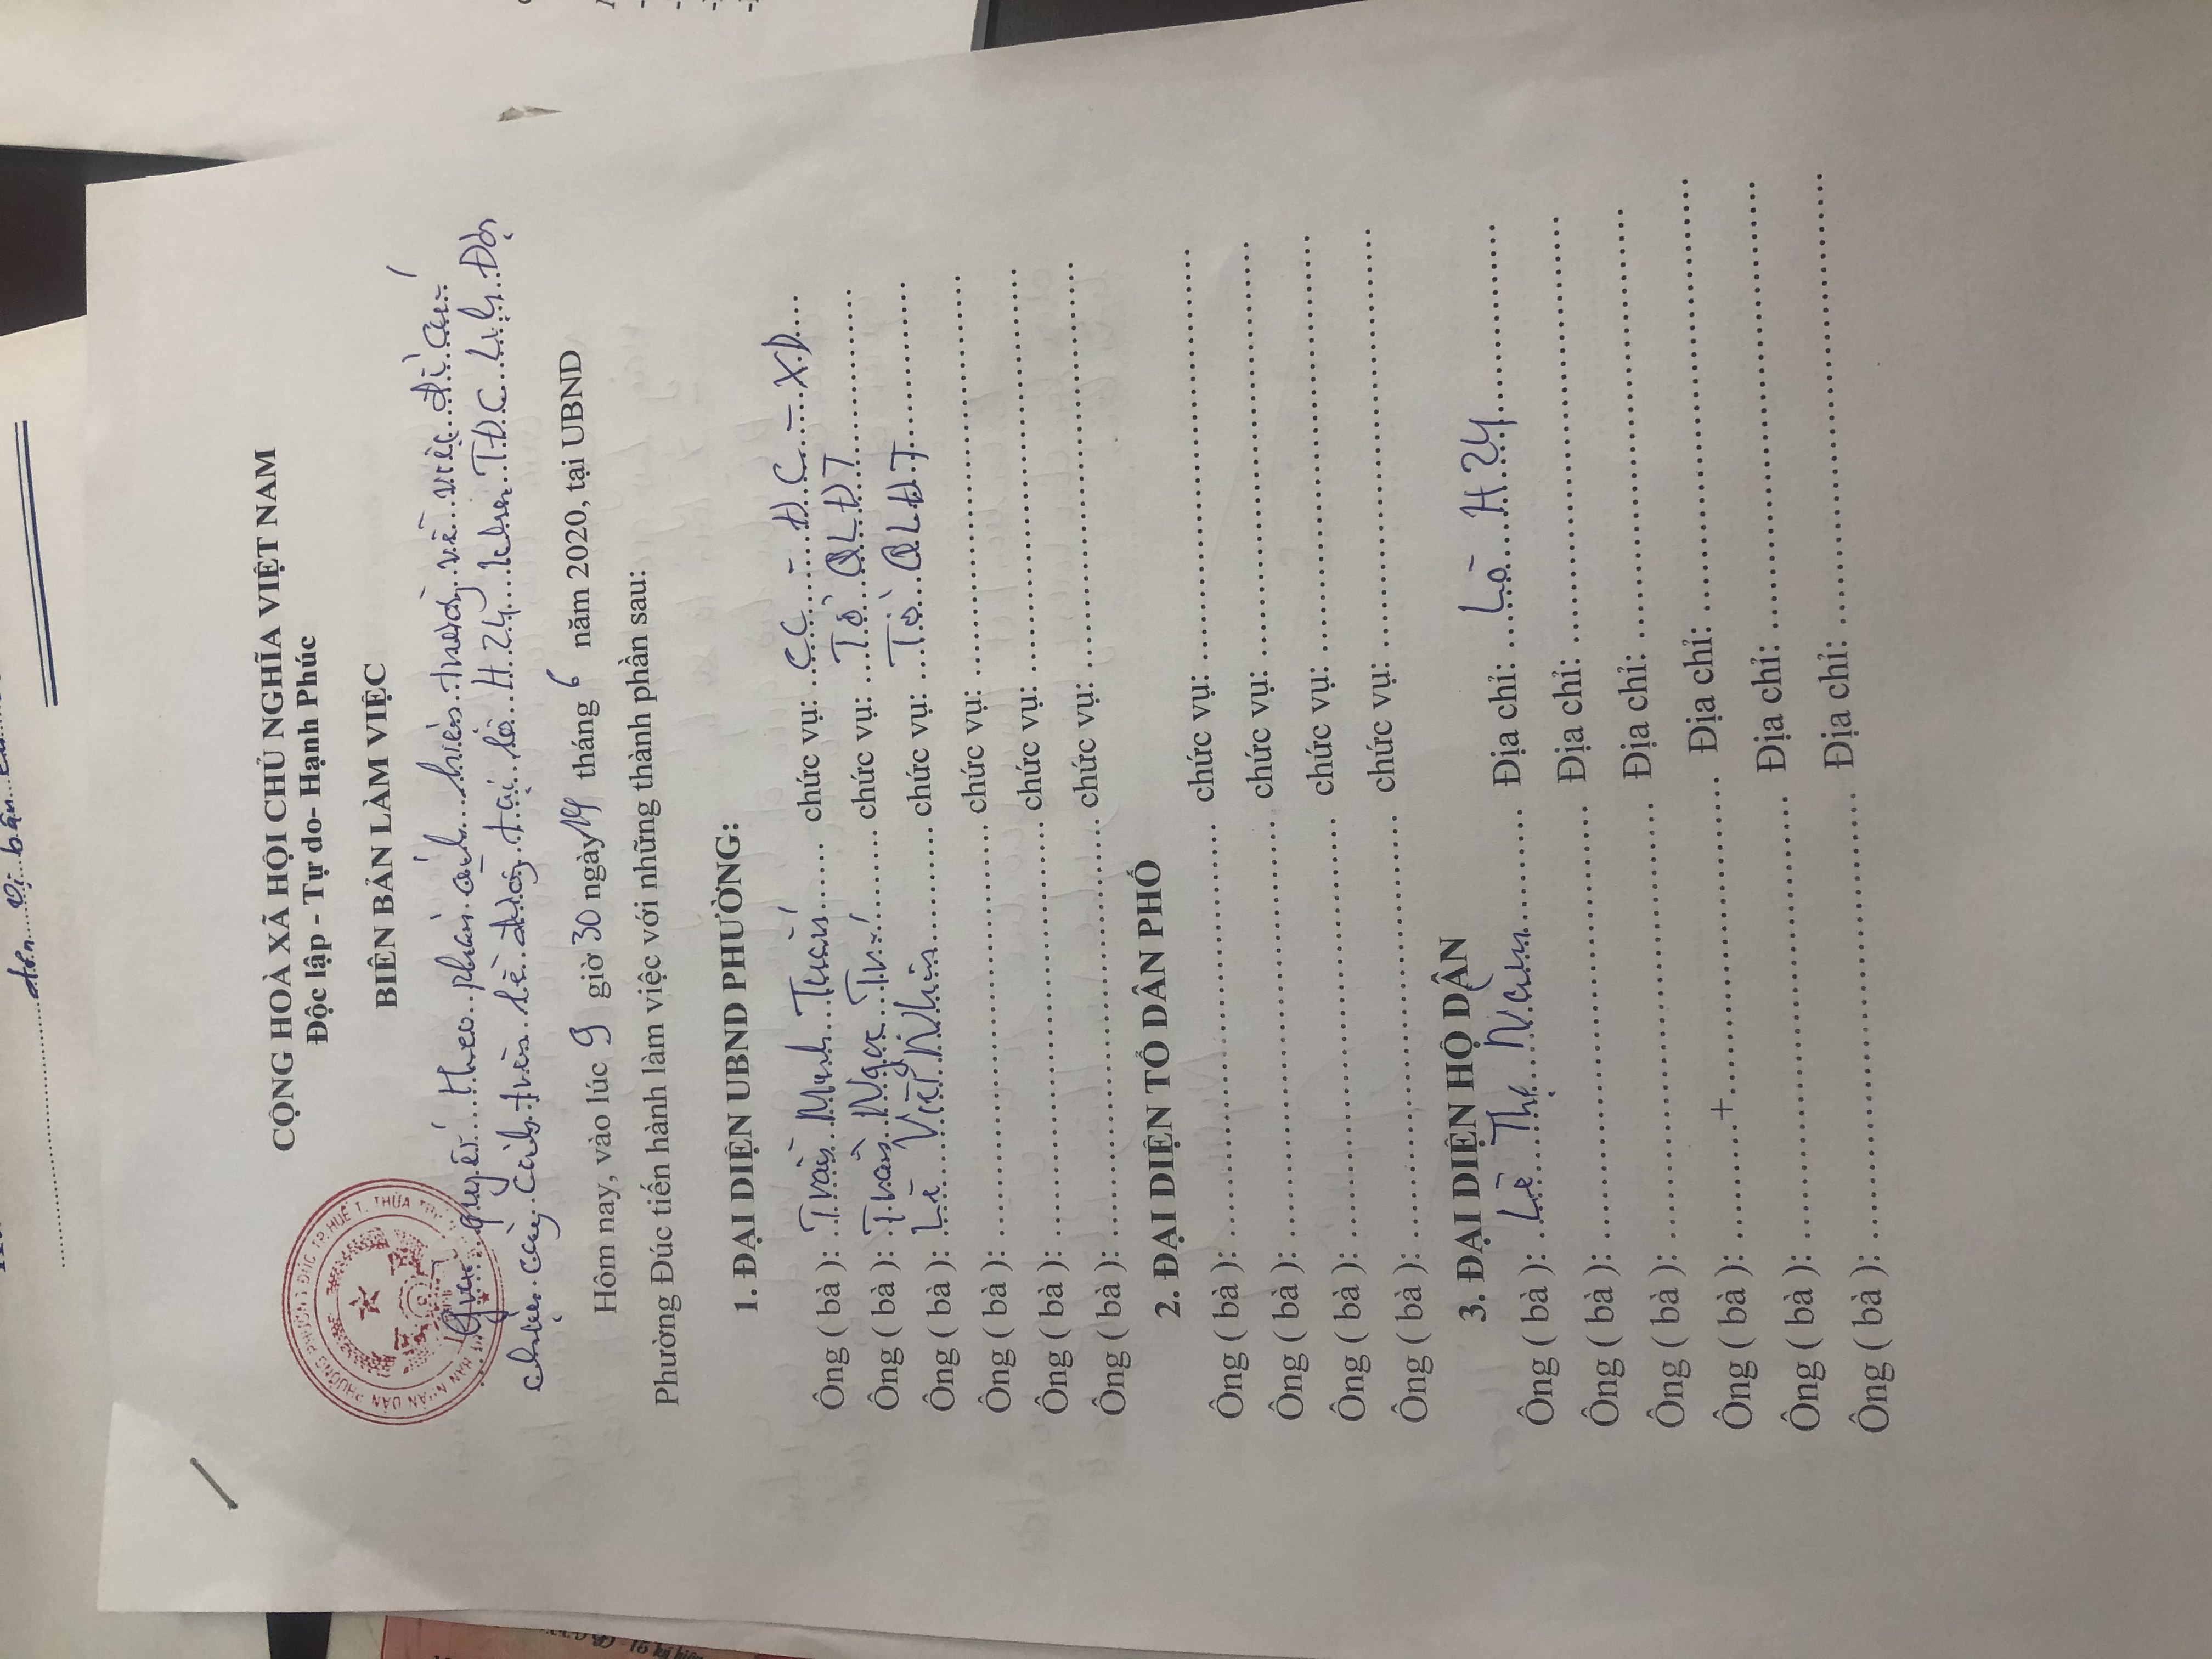 CỘNG HOÀ XÃ HỘI CHỦ NGHĨA VIỆT NAM
Độc lập - Tự do- Hạnh Phúc
BIÊN BẢN LÀM VIỆC
quyết theo phản ánh kiến về việc
trên tại lô H24 khu TĐC
Hôm nay, vào lúc 9 giờ 30 ngày 19 tháng 6 năm 2020, tại UBND
Phường Đúc tiến hành làm việc với những thành phần sau:
1. ĐẠI DIỆN UBND PHƯỜNG:
Ông ( bà ): Trần Minh Tuấn chức vụ: CC - ĐC - XD
Ông ( bà ): Trần Ngọc Trí chức vụ: Tổ QLĐT
Ông ( bà ): Lê Viết Nhin chức vụ: Tổ QLĐT
Ông ( bà ): chức vụ:
Ông ( bà ): chức vụ:
Ông ( bà ): chức vụ:
2. ĐẠI DIỆN TỔ DÂN PHỐ
Ông ( bà ): chức vụ:
Ông ( bà ): chức vụ:
Ông ( bà ): chức vụ:
Ông ( bà ): chức vụ:
3. ĐẠI DIỆN HỘ DÂN
Ông ( bà ): Lê Thị Nam Địa chỉ: Lô H24
Ông ( bà ): Địa chỉ:
Ông ( bà ): Địa chỉ:
Ông ( bà ): Địa chỉ:
Ông ( bà ): Địa chỉ:
Ông ( bà ): Địa chỉ: